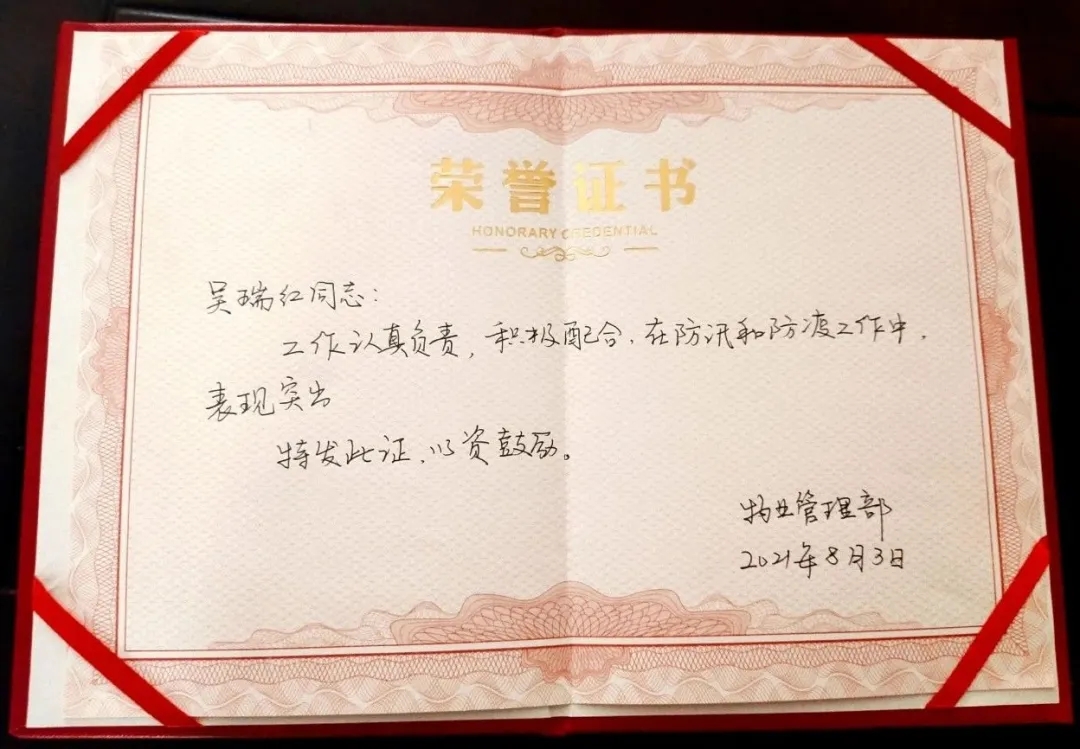 荣誉证书
HONORARY CREDENTIAL
吴瑞红同志：
工作认真负责，积极配合，在防汛和防疫工作中，
表现突出
特发此证，以资鼓励。
物业管理部
2021年8月3日